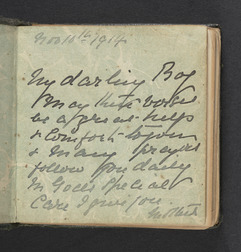 Nov 10th 1914
My darling Boy
May these words
be a great help
& comfort to you
& Many prayers
follow you daily
In God's Special
Care I give you.
Mother